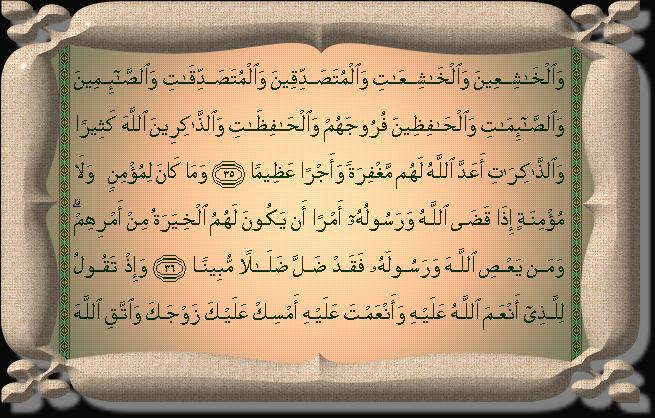 وَٱلْخَـٰشِـعِينَ وَٱلْخَـٰشِـعَـٰتِ وَٱلْمُتَصَـدِّقِينَ وَٱلْمُتَصَـدِّقَـٰتِ وَٱلصَّـٰٓئِـمِينَ
وَٱلصَّـٰٓئِمَـٰتِ وَٱلْحَـٰفِظِينَ فُرُوجَهُمْ وَٱلْحَـٰفِظَـٰتِ وَٱلذَّٰكِرِينَ ٱللَّهَ كَثِيرًا
وَٱلذَّٰكِرَٰتِ أَعَدَّ ٱللَّهُ لَهُم مَّغْفِرَةً وَأَجْرًا عَظِيمًا ٣٥ وَمَا كَانَ لِمُؤْمِنٍ وَلَا
مُؤْمِنَةٍ إِذَا قَضَى ٱللَّهُ وَرَسُولُهُۥٓ أَمْرًا أَن يَكُونَ لَهُمُ ٱلْخِيَرَةُ مِنْ أَمْرِهِمْ ۗ
وَمَـن يَعْـصِ ٱللَّـهَ وَرَسُـولَهُۥ فَقَـدْ ضَـلَّ ضَلَـٰلًا مُّبِينًـا ٣٦ وَإِذْ تَقُـولُ
لِلَّـذِىٓ أَنْعَـمَ ٱللَّهُ عَلَيْهِ وَأَنْعَمْتَ عَلَيْهِ أَمْسِكْ عَلَيْكَ زَوْجَـكَ وَٱتَّقِ ٱللَّهَ